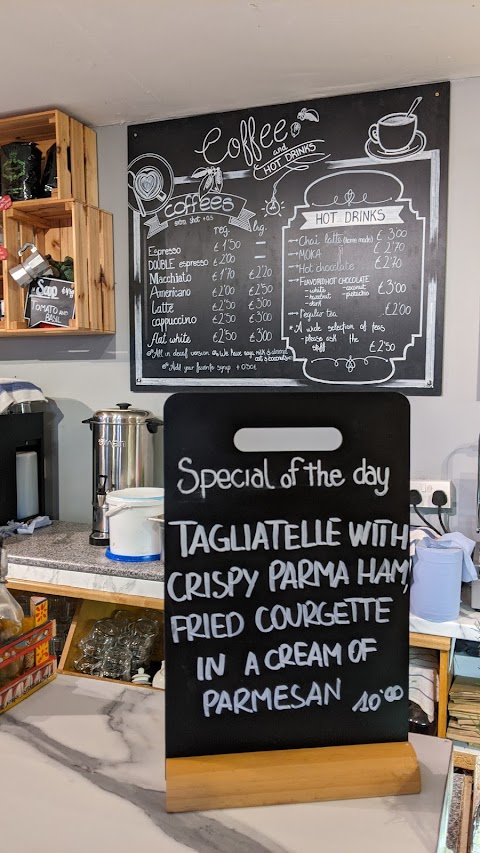 Coffee
and
HOT DRINKS
Coffees
extra shot + 0.5
reg. lrg.
Espresso £1'50 —
DOUBLE espresso £2'00 —
Macchiato £1'70 £2'20
Americano £2'00 £2'50
Latte £2'50 £3'00
cappuccino £2'50 £3'00
flat white £2'50 £3'00
Add your favorite syrup + 0.50£
HOT DRINKS
Chai latte (home made) £3'00
MOKA £2'70
Hot chocolate £2'70
FLAVORED HOT CHOCOLATE £3'00
- white - coconut
- hazelnut - pistachio
- dark
Regular tea £2'00
* A wide selection of teas
- please ask the
staff £2'50
Soup
TOMATO AND
BASIL
Special of the day
TAGLIATELLE WITH
CRISPY PARMA HAM,
FRIED COURGETTE
IN A CREAM OF
PARMESAN 10'00